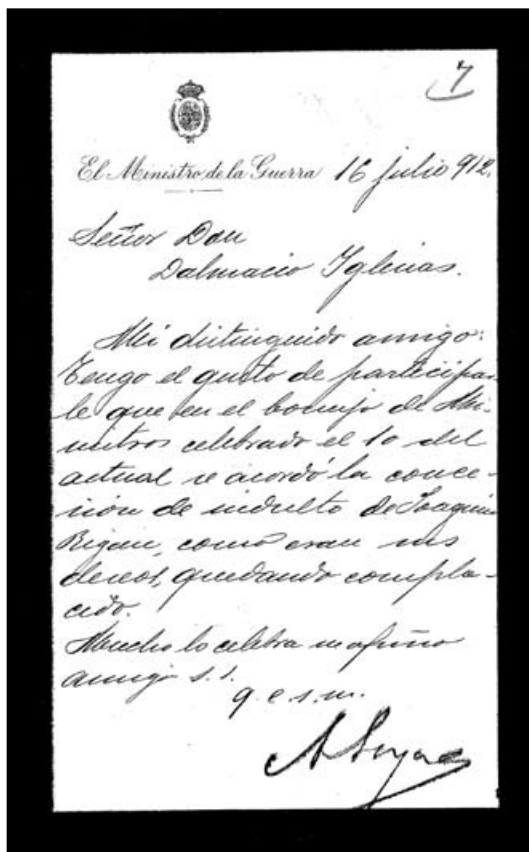 7
El Ministro de la Guerra 16 julio 912.
Señor Don
Dalmacio Iglesias.
Mi distinguido amigo:
Tengo el gusto de participar-
le que en el Consejo de Mi-
nistros celebrado el 10 del
actual se acordó la conce-
sión de indulto de Joaquin
Rigau, como eran sus
deseos, quedando compla-
cido.
Mucho lo celebra su afmo
amigo s.s.
q.e.s.m.